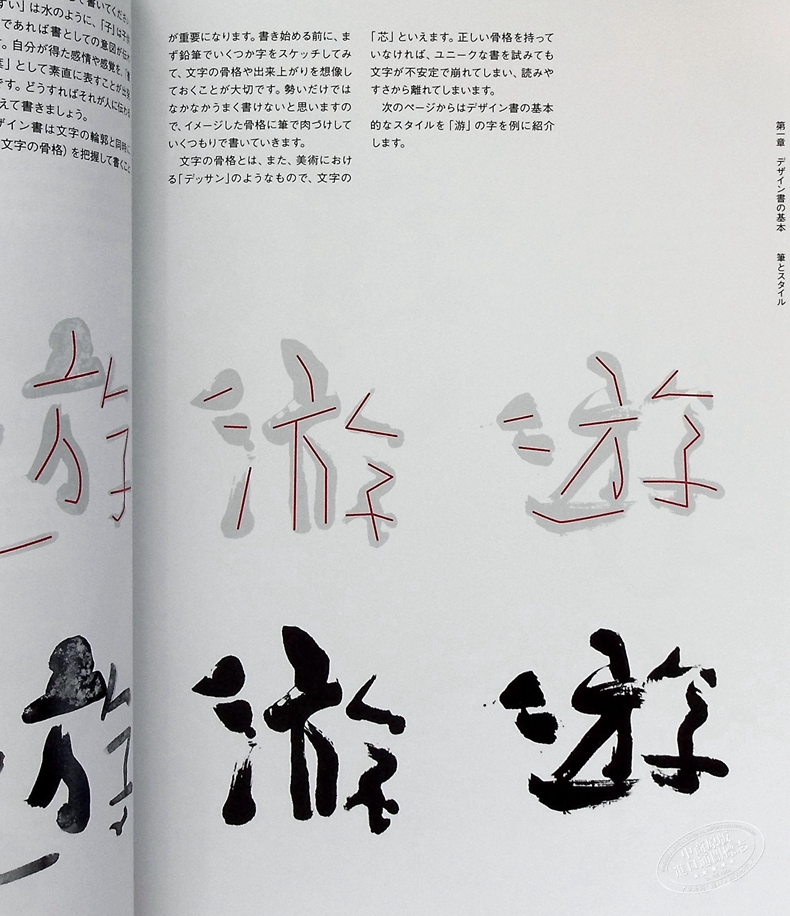 ずい」は水のように、「子」は子供
であれば書としての意図が伝わ
す。自分が得た感情や感覚を、「書
」として素直に表すことが出発
です。どうすればそれが人に伝わる
えて書きましょう。
ザイン書は文字の輪郭と同時に
文字の骨格)を把握して書くこと
が重要になります。書き始める前に、ま
ず鉛筆でいくつか字をスケッチしてみ
て、文字の骨格や出来上がりを想像し
ておくことが大切です。勢いだけでは
なかなかうまく書けないと思いますの
で、イメージした骨格に筆で肉づけして
いくつもりで書いていきます。
文字の骨格とは、また、美術におけ
る「デッサン」のようなもので、文字の
「芯」といえます。正しい骨格を持って
いなければ、ユニークな書を試みても
文字が不安定で崩れてしまい、読みや
すさから離れてしまいます。
次のページからはデザイン書の基本
的なスタイルを「游」の字を例に紹介
します。
第一章 デザイン書の基本 筆とスタイル
游
游
游
游
游
游